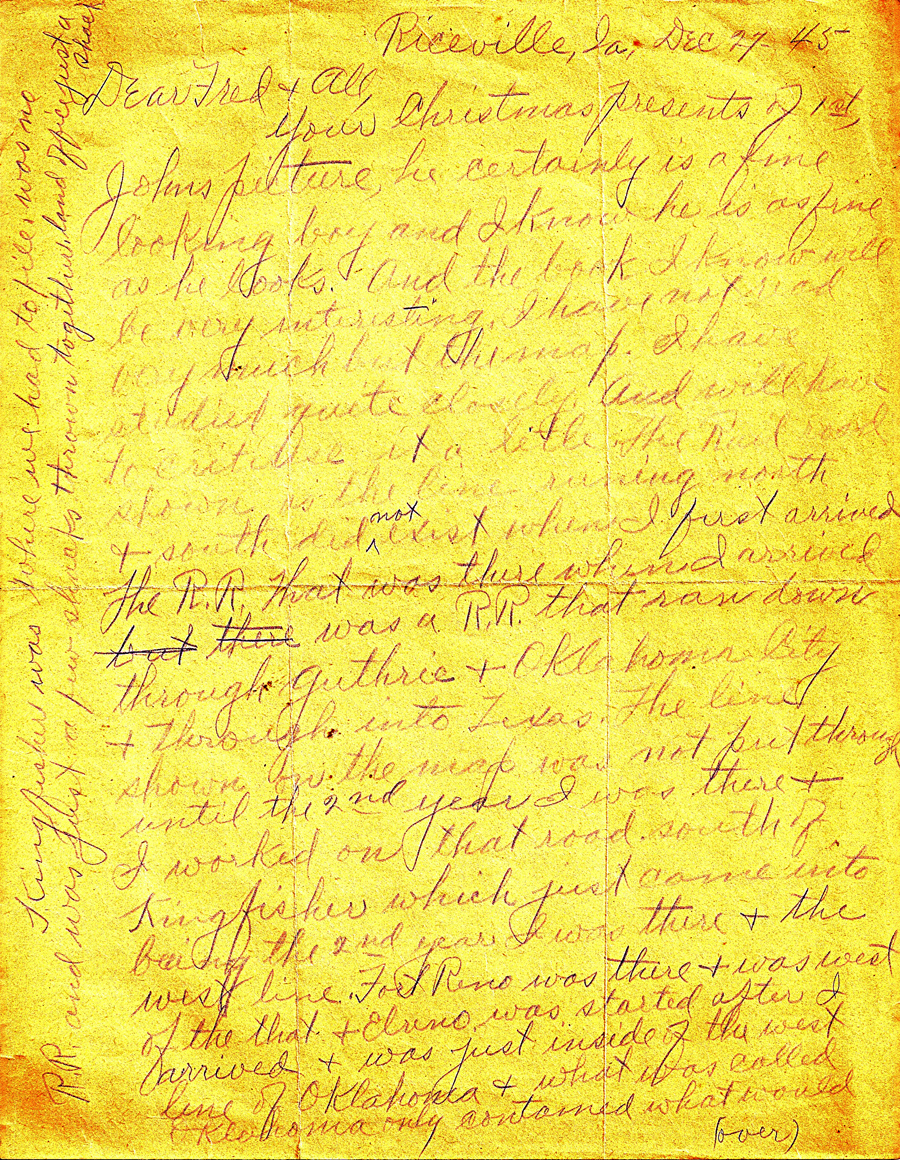 Riceville, Ia, Dec 27 - 45
Dear Fred & All
Your Christmas presents of 1st,
Johns picture, he certainly is a fine
looking boy and I know he is as fine
as he looks. And the book I know will
be very interesting, I have not read
very much but the map. I have
studied quite closely. And will have
to critisise it a little The Rail road
shown is the line runing north
& south did not exist when I first arrived
The R.R. that was there when I arrived
but there was a R.R. that ran down
through Guthrie & Oklahoma City
& through into Texas. The line
shown on the map was not put through
until the 2nd year I was there &
I worked on that road south of
Kingfisher which just came into
being the 2nd year I was there & the
west line. Fort Reno was there & was west
of the that & Elreno was started after I
arrived & was just inside of the west
line of Oklahoma & what was called
Oklahoma only contained what would
(over)
Kingfisher was where we had to file, was no
R.R. and was just a few shacks thrown together, land office just a
shack